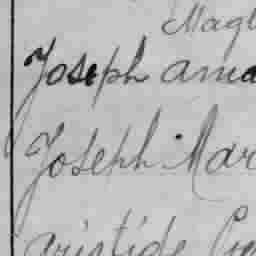 Magl
Joseph ama
Joseph Mar
aristide